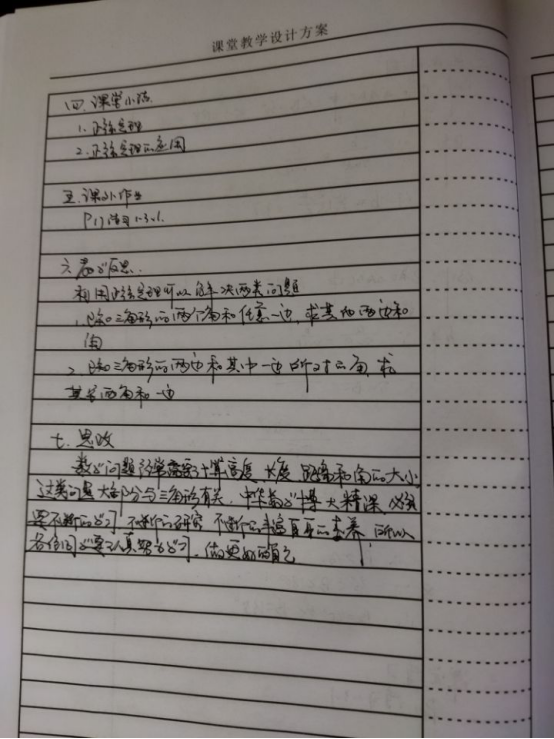 课堂教学设计方案
四、课堂小结
1. 正弦定理
2. 正弦定理的应用
五、课外作业
P11 练习
六、教学反思
利用正弦定理可以解决两类问题
1. 已知三角形的两个角和任意一边,求其他两边和
角
2. 已知三角形的两边和其中一边所对的角,求
其他两角和一边
七、思政
数学问题经常需要计算高度 长度 距离和角的大小
这类问题大部分与三角形有关. 数学博大精深 必须
要不断的学习 不断的研究 不断的 自己的素养 所以
各位同学要认真努力学习,做更好的自己